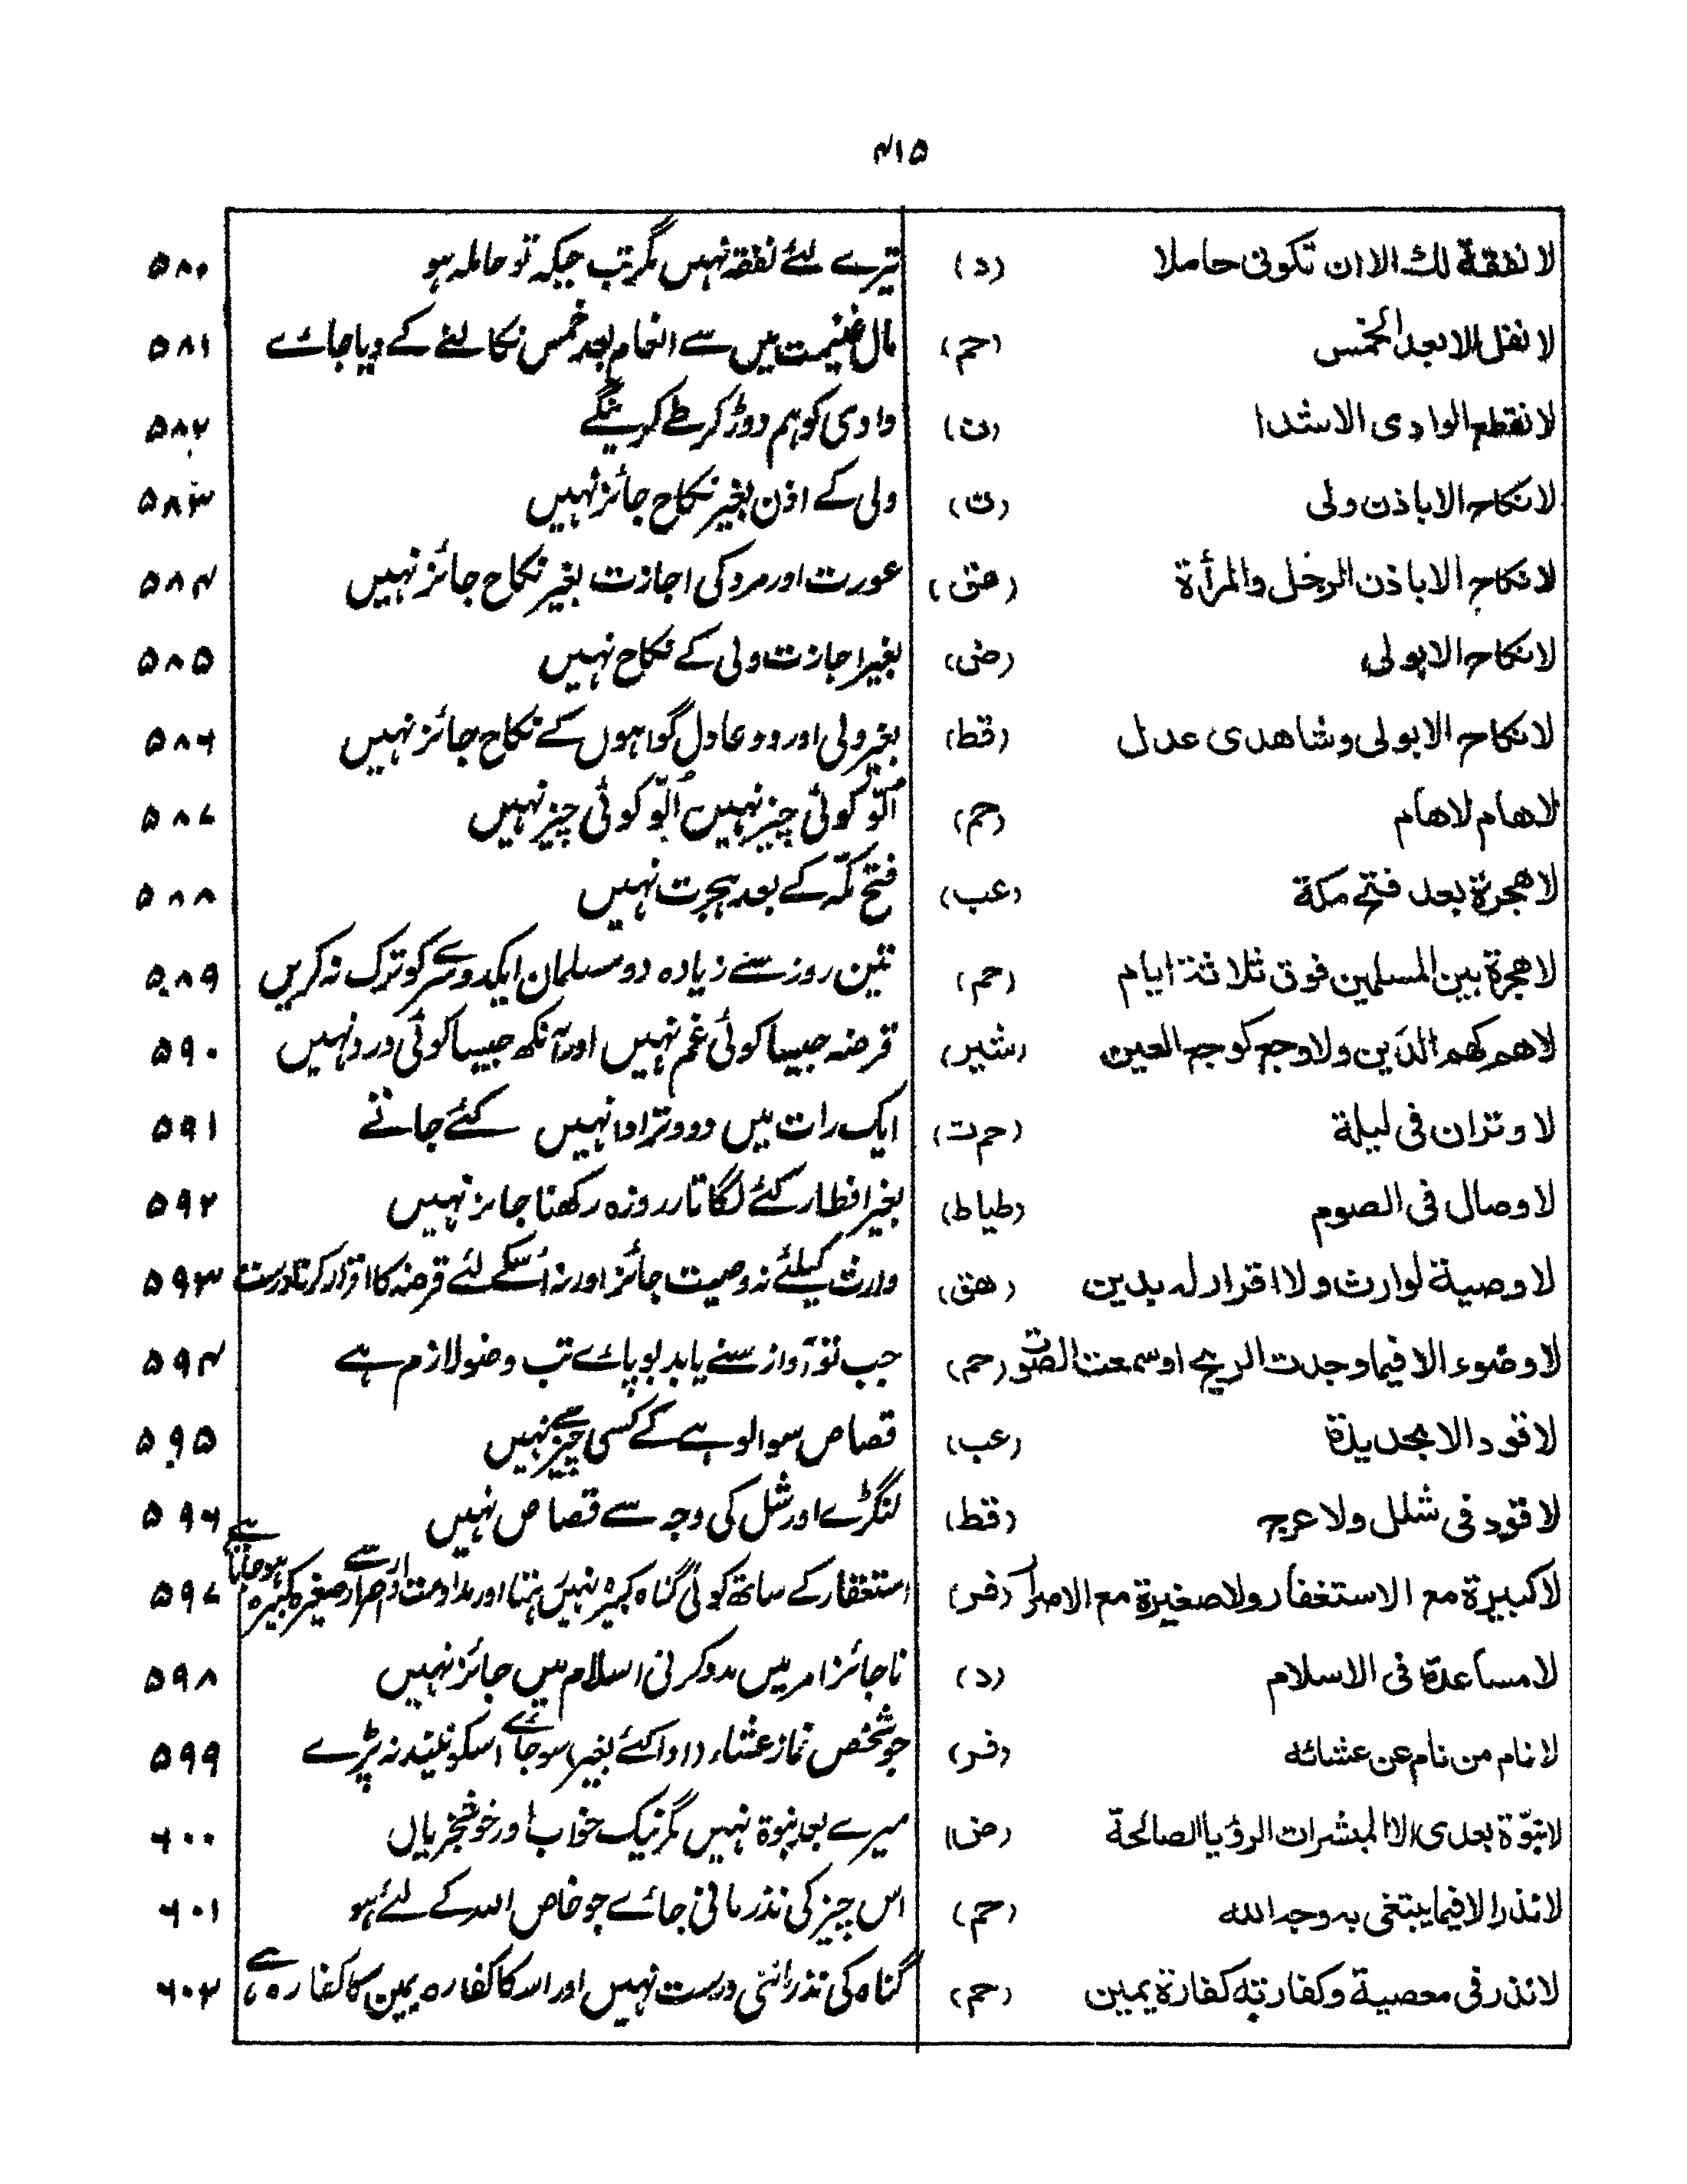 ۴۱۵
لا نفقة لك الا ان تكونى حاملا (د) تیرے لئے نفقہ نہیں مگر تب جبکہ تو حاملہ ہو ۵۸۰
لا نفل الا بعد الخمس (حم) مال غنیمت میں سے انعام بعد خمس نکالنے کے دیا جائے ۵۸۱
لا نقطع الوادى الا شدا (ن) وادی کو ہم دوڑ کر طے کرینگے ۵۸۲
لا نكاح الا باذن ولى (ت) ولی کے اذن بغیر نکاح جائز نہیں ۵۸۳
لا نكاح الا باذن الرجل والمرأة (هق) عورت اور مرد کی اجازت بغیر نکاح جائز نہیں ۵۸۴
لا نكاح الا بولى (ض) بغیر اجازت ولی کے نکاح نہیں ۵۸۵
لا نكاح الا بولى وشاهدى عدل (قط) بغیر ولی اور دو عادل گواہوں کے نکاح جائز نہیں ۵۸۶
لا هام لا هام (حم) اُلّو کوئی چیز نہیں اُلّو کوئی چیز نہیں ۵۸۷
لا هجرة بعد فتح مكة (عب) فتح مکّہ کے بعد ہجرت نہیں ۵۸۸
لا هجرة بين المسلمين فوق ثلاثة ايام (حم) تین روز سے زیادہ دو مسلمان ایکدوسرے کو ترک نہ کریں ۵۸۹
لا هم كهم الدَين ولا وجع كوجع العين (شیر) قرضہ جیسا کوئی غم نہیں اور آنکھ جیسا کوئی درد نہیں ۵۹۰
لا وتران فى ليلة (حم ت) ایک رات میں دو وتر ادا نہیں کئے جاتے ۵۹۱
لا وصال فى الصوم (طیا ط) بغیر افطار کئے لگاتار روزہ رکھنا جائز نہیں ۵۹۲
لا وصية لوارث ولا اقرار له بدين (هق) وارث کیلئے نہ وصیت جائز اور نہ اُسکے لئے قرضہ کا اقرار کرنا درست ۵۹۳
لا وضوء الا فيما وجدت الريح او سمعت الصوت (حم) جب تو آواز سنے یا بدبو پائے تب وضو لازم ہے ۵۹۴
لا قود الا بحديدة (عب) قصاص سوا لوہے کے کسی چیز سے نہیں ۵۹۵
لا قود فى شلل ولا عرج (قط) لنگڑے اور شل کی وجہ سے قصاص نہیں ۵۹۶
لا كبيرة مع الاستغفار ولا صغيرة مع الاصرار (فر) استغفار کے ساتھ کوئی گناہ کبیرہ نہیں رہتا اور مداومت و اصرار سے صغیرہ کبیرہ ہو جاتا ہے ۵۹۷
لا مساعدة فى الاسلام (د) ناجائز امر میں مدد کرنی اسلام میں جائز نہیں ۵۹۸
لا نام من نام عن عشائه (فر) جو شخص نماز عشاء (ادا کئے بغیر) سو جائے اسکو نیند نہ پڑے ۵۹۹
لا نبوّة بعدى الا المبشرات الرؤيا الصالحة (ض) میرے بعد نبوۃ نہیں مگر نیک خواب اور خوشخبریاں ۶۰۰
لا نذر الا فيما يبتغى به وجه الله (حم) اس چیز کی نذر مانی جائے جو خاص اللہ کے لئے ہو ۶۰۱
لا نذر فى معصية وكفارته كفارة يمين (حم) گناہ کی نذر ماننی درست نہیں اور اس کا کفارہ یمین کا کفارہ ہے ۶۰۲